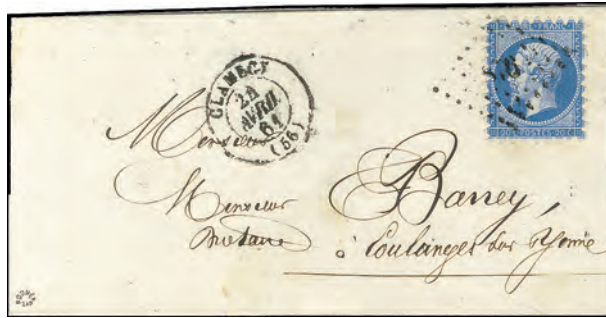 CLAMECY
24
AVRIL
61
(56)
EMPIRE FRANC
20c POSTES 20c
Monsieur
Barrey,
Monsieur
Notaire
à Coulanges sur Yonne